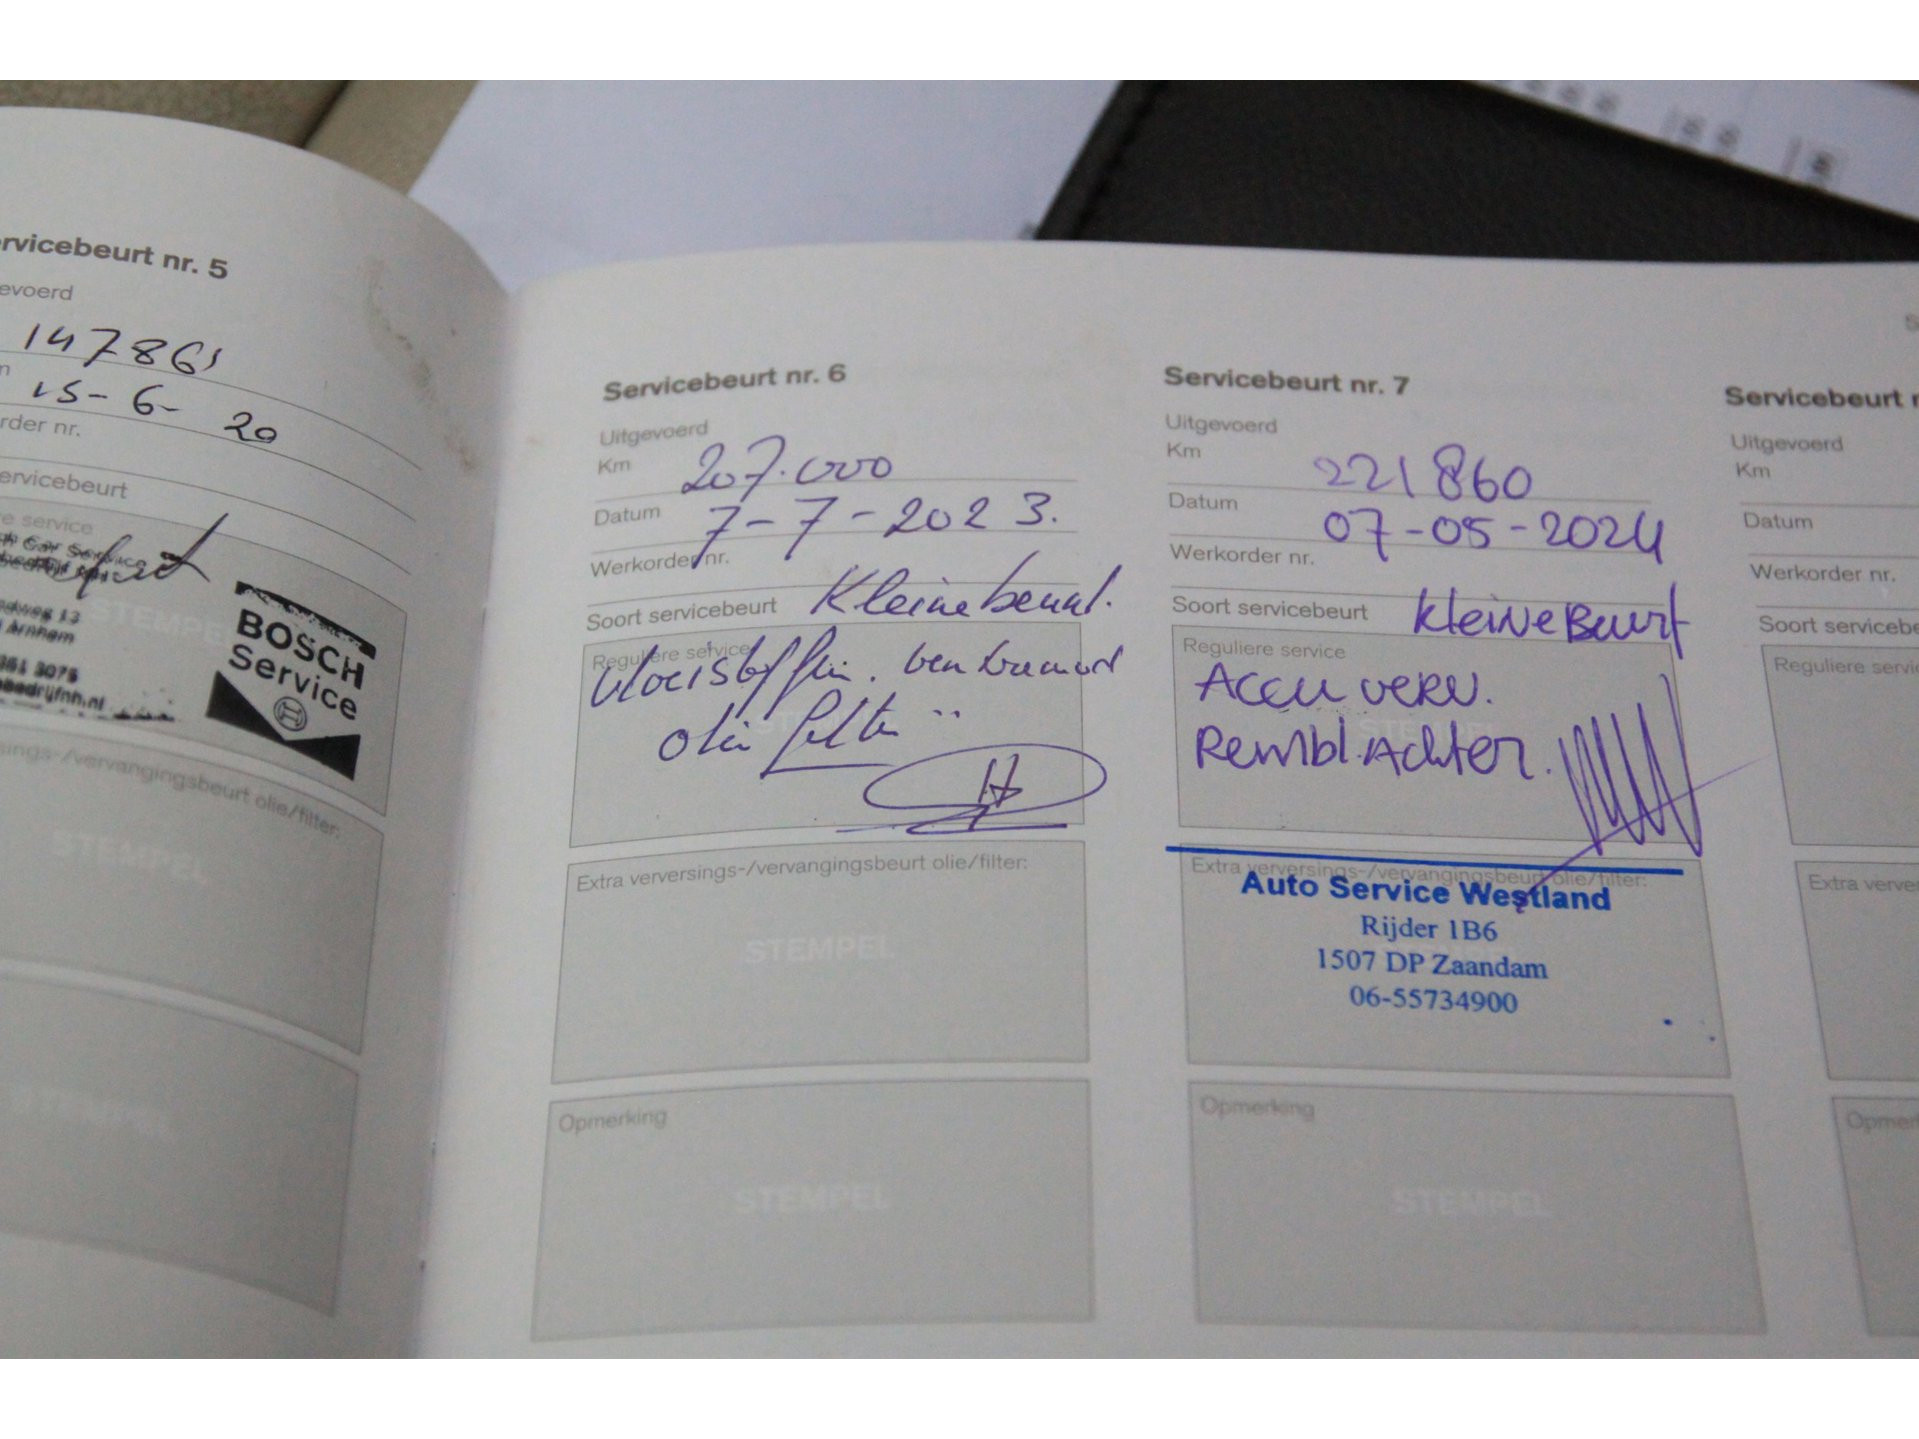 rvicebeurt nr. 5
evoerd
147861
15-6-20
rder nr.
ervicebeurt
re service
Car Service
STEMPE
dweg 13
Arnhem
361 3075
bedrijfnh.nl
BOSCH
Service
sings-/vervangingsbeurt olie/filter:
STEMPEL
STEMPEL
Servicebeurt nr. 6
Uitgevoerd
Km 207.000
Datum 7-7-2023.
Werkorder nr.
Soort servicebeurt Kleine beurt.
Reguliere service
Vloeistoffen.
olie filter
Extra verversings-/vervangingsbeurt olie/filter:
STEMPEL
Opmerking
STEMPEL
Servicebeurt nr. 7
Uitgevoerd
Km 221860
Datum 07-05-2024
Werkorder nr.
Soort servicebeurt kleine Beurt
Reguliere service
Accu verv.
Rembl. Achter.
Extra verversings-/vervangingsbeurt olie/filter:
Auto Service Westland
Rijder 1B6
1507 DP Zaandam
06-55734900
Opmerking
STEMPEL
Servicebeurt
Uitgevoerd
Km
Datum
Werkorder nr.
Soort servicebe
Reguliere servic
Extra verve
Opmer